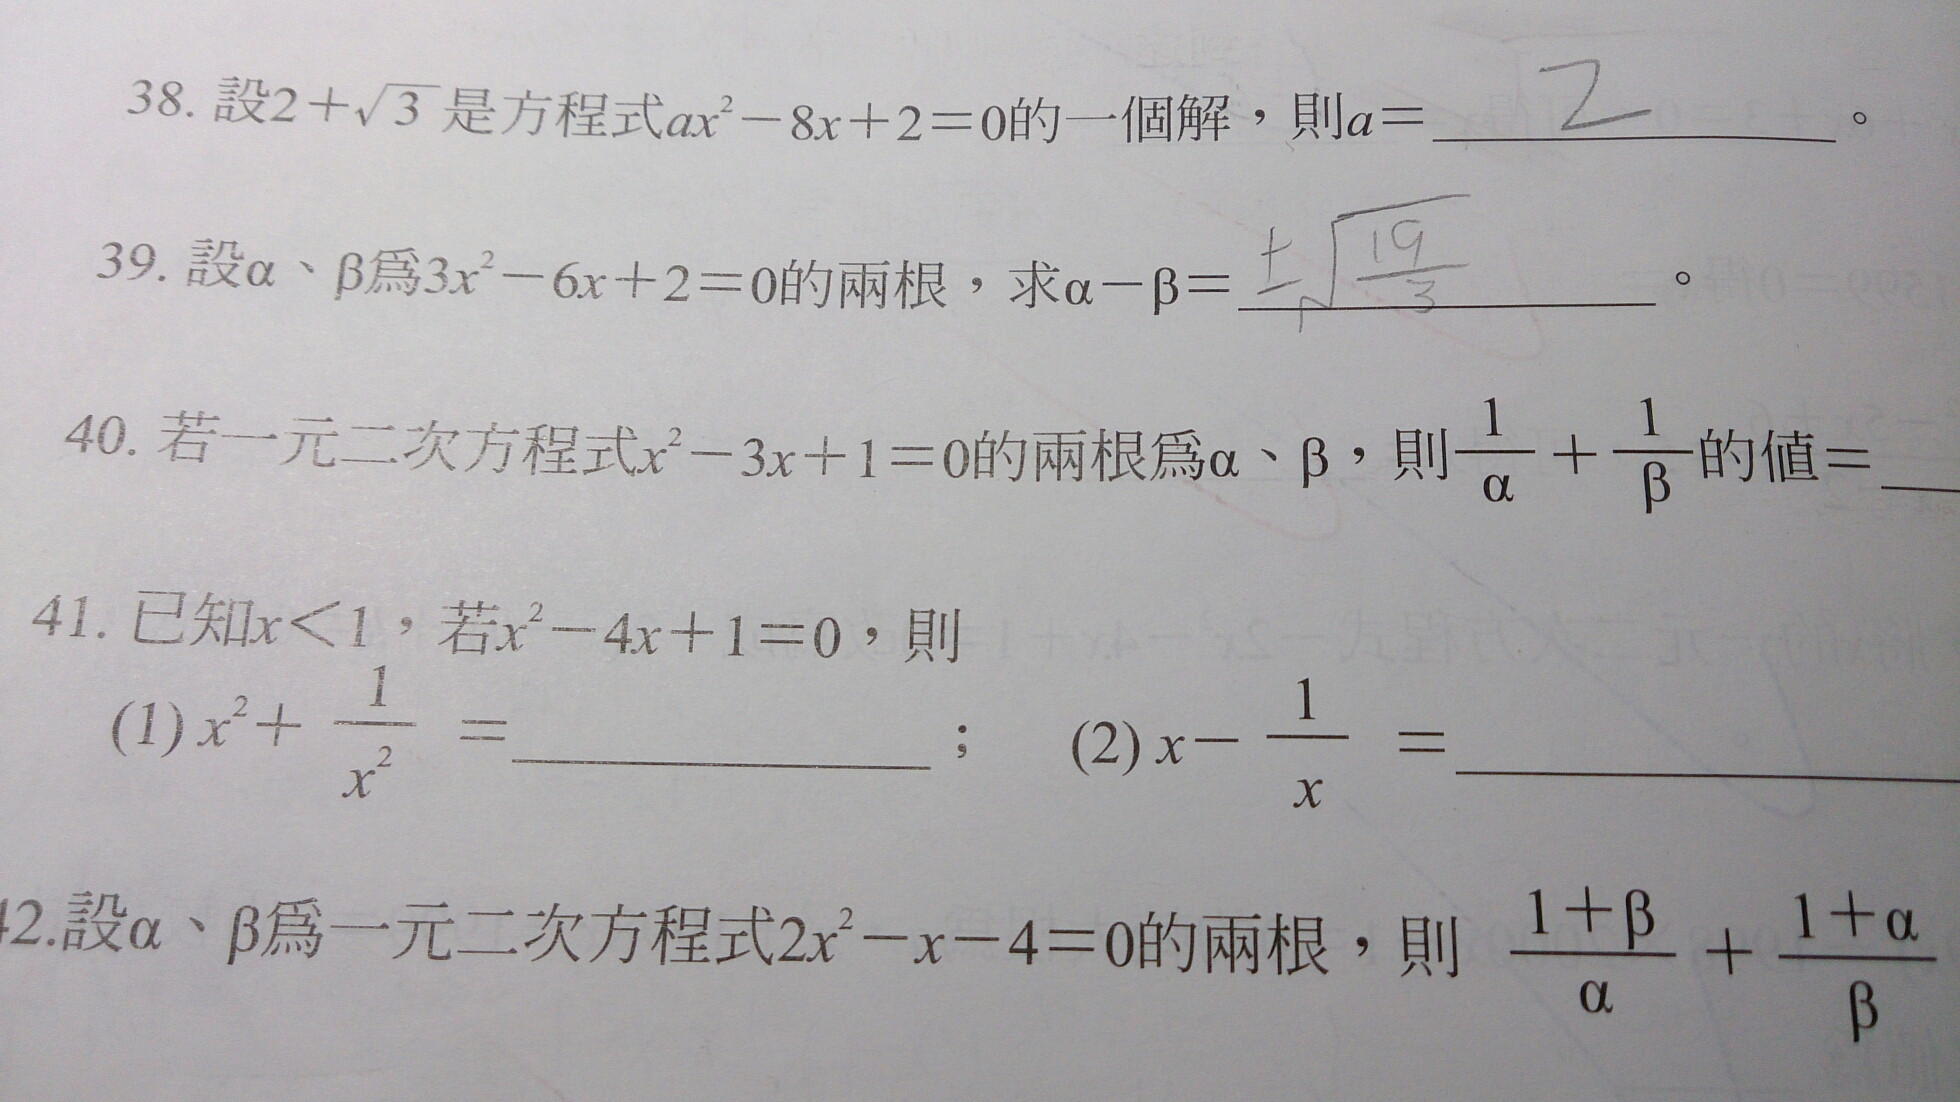 38. 設2+√3是方程式ax²-8x+2=0的一個解，則a=2。
39. 設α、β為3x²-6x+2=0的兩根，求α-β=±√(19/3)。
40. 若一元二次方程式x²-3x+1=0的兩根為α、β，則1/α+1/β的值=
41. 已知x<1，若x²-4x+1=0，則
(1) x²+1/x²=______； (2) x-1/x=______
42.設α、β為一元二次方程式2x²-x-4=0的兩根，則 (1+β)/α+(1+α)/β